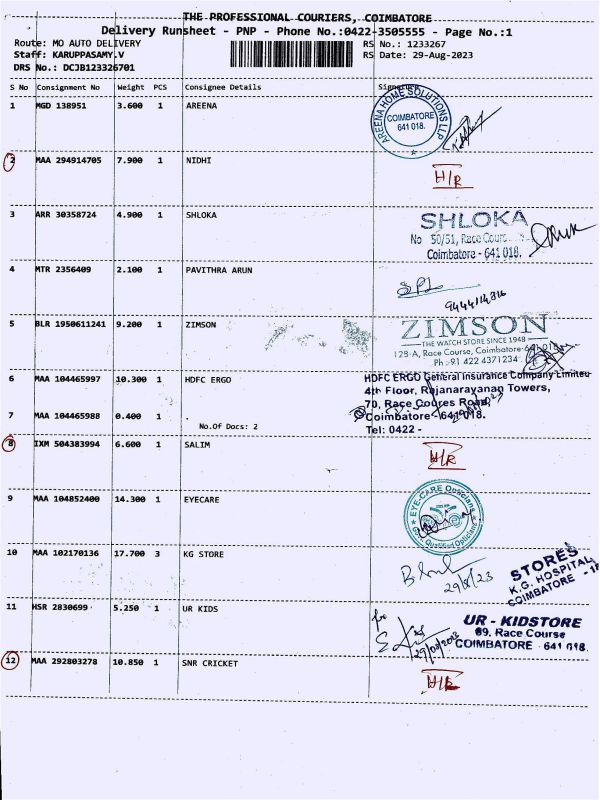 THE PROFESSIONAL COURIERS, COIMBATORE
Delivery Runsheet - PNP - Phone No.:0422-3505555 - Page No.:1
Route: MO AUTO DELIVERY
RS No.: 1233267
Staff: KARUPPASAMY.V
RS Date: 29-Aug-2023
DRS No.: DCJB123326701
S No Consignment No Weight PCS Consignee Details Signature
1 MGD 138951 3.600 1 AREENA
AREENA HOME SOLUTIONS LLP
COIMBATORE
641 018.
2 MAA 294914705 7.900 1 NIDHI
H/R
3 ARR 30358724 4.900 1 SHLOKA
SHLOKA
No 50/51, Race Cours
Coimbatore - 641 018.
4 MTR 2356409 2.100 1 PAVITHRA ARUN
5 BLR 1950611241 9.200 1 ZIMSON
ZIMSON
THE WATCH STORE SINCE 1948
128-A, Race Course, Coimbatore-641 018
Ph : 91 422 4371234
6 MAA 104465997 10.300 1 HDFC ERGO
HDFC ERGO General Insurance Company Limited
4th Floor, Rajanarayanan Towers,
70, Race Coures Road,
7 MAA 104465988 0.400 1 .
Coimbatore - 641 018.
No.Of Docs: 2
Tel: 0422 -
8 IXM 504383994 6.600 1 SALIM
H/R
9 MAA 104852400 14.300 1 EYECARE
EYE-CARE Opticians
Govt. Qualified Opticians
10 MAA 102170136 17.700 3 KG STORE
29/8/23
STORES
K.G. HOSPITAL
COIMBATORE - 18
11 HSR 2830699 5.250 1 UR KIDS
29/08/2023
UR - KIDSTORE
89, Race Course
COIMBATORE - 641 018.
12 MAA 292803278 10.850 1 SNR CRICKET
H/R